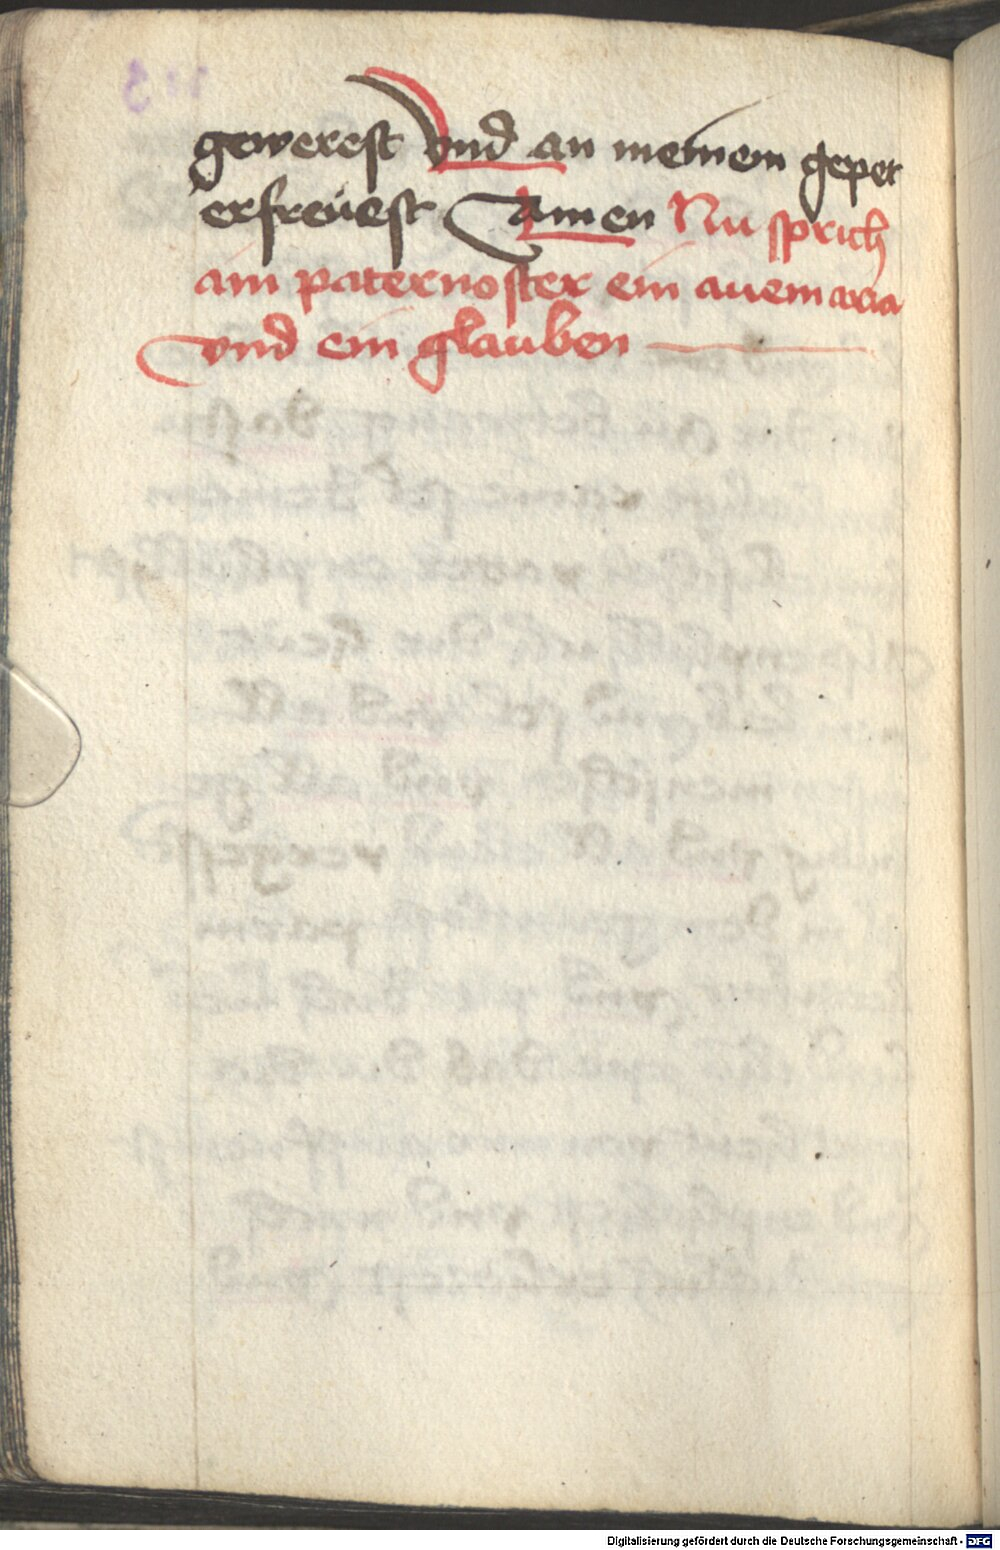 gewerest vnd an meinem gepet
erfreüest Amen Nu sprich
ain paternoster ein auemaria
vnd ein glauben
Digitalisierung gefördert durch die Deutsche Forschungsgemeinschaft - DFG